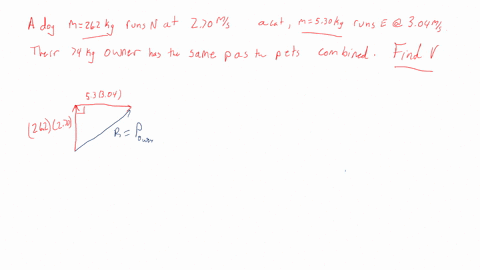 A dog m=26.2 kg runs N at 2.70 m/s a cat, m=5.30 kg runs E @ 3.04 m/s
Their 74 kg owner has the same p as the pets combined. Find V
5.3(3.04)
(26.2)(2.70)
R = P owner